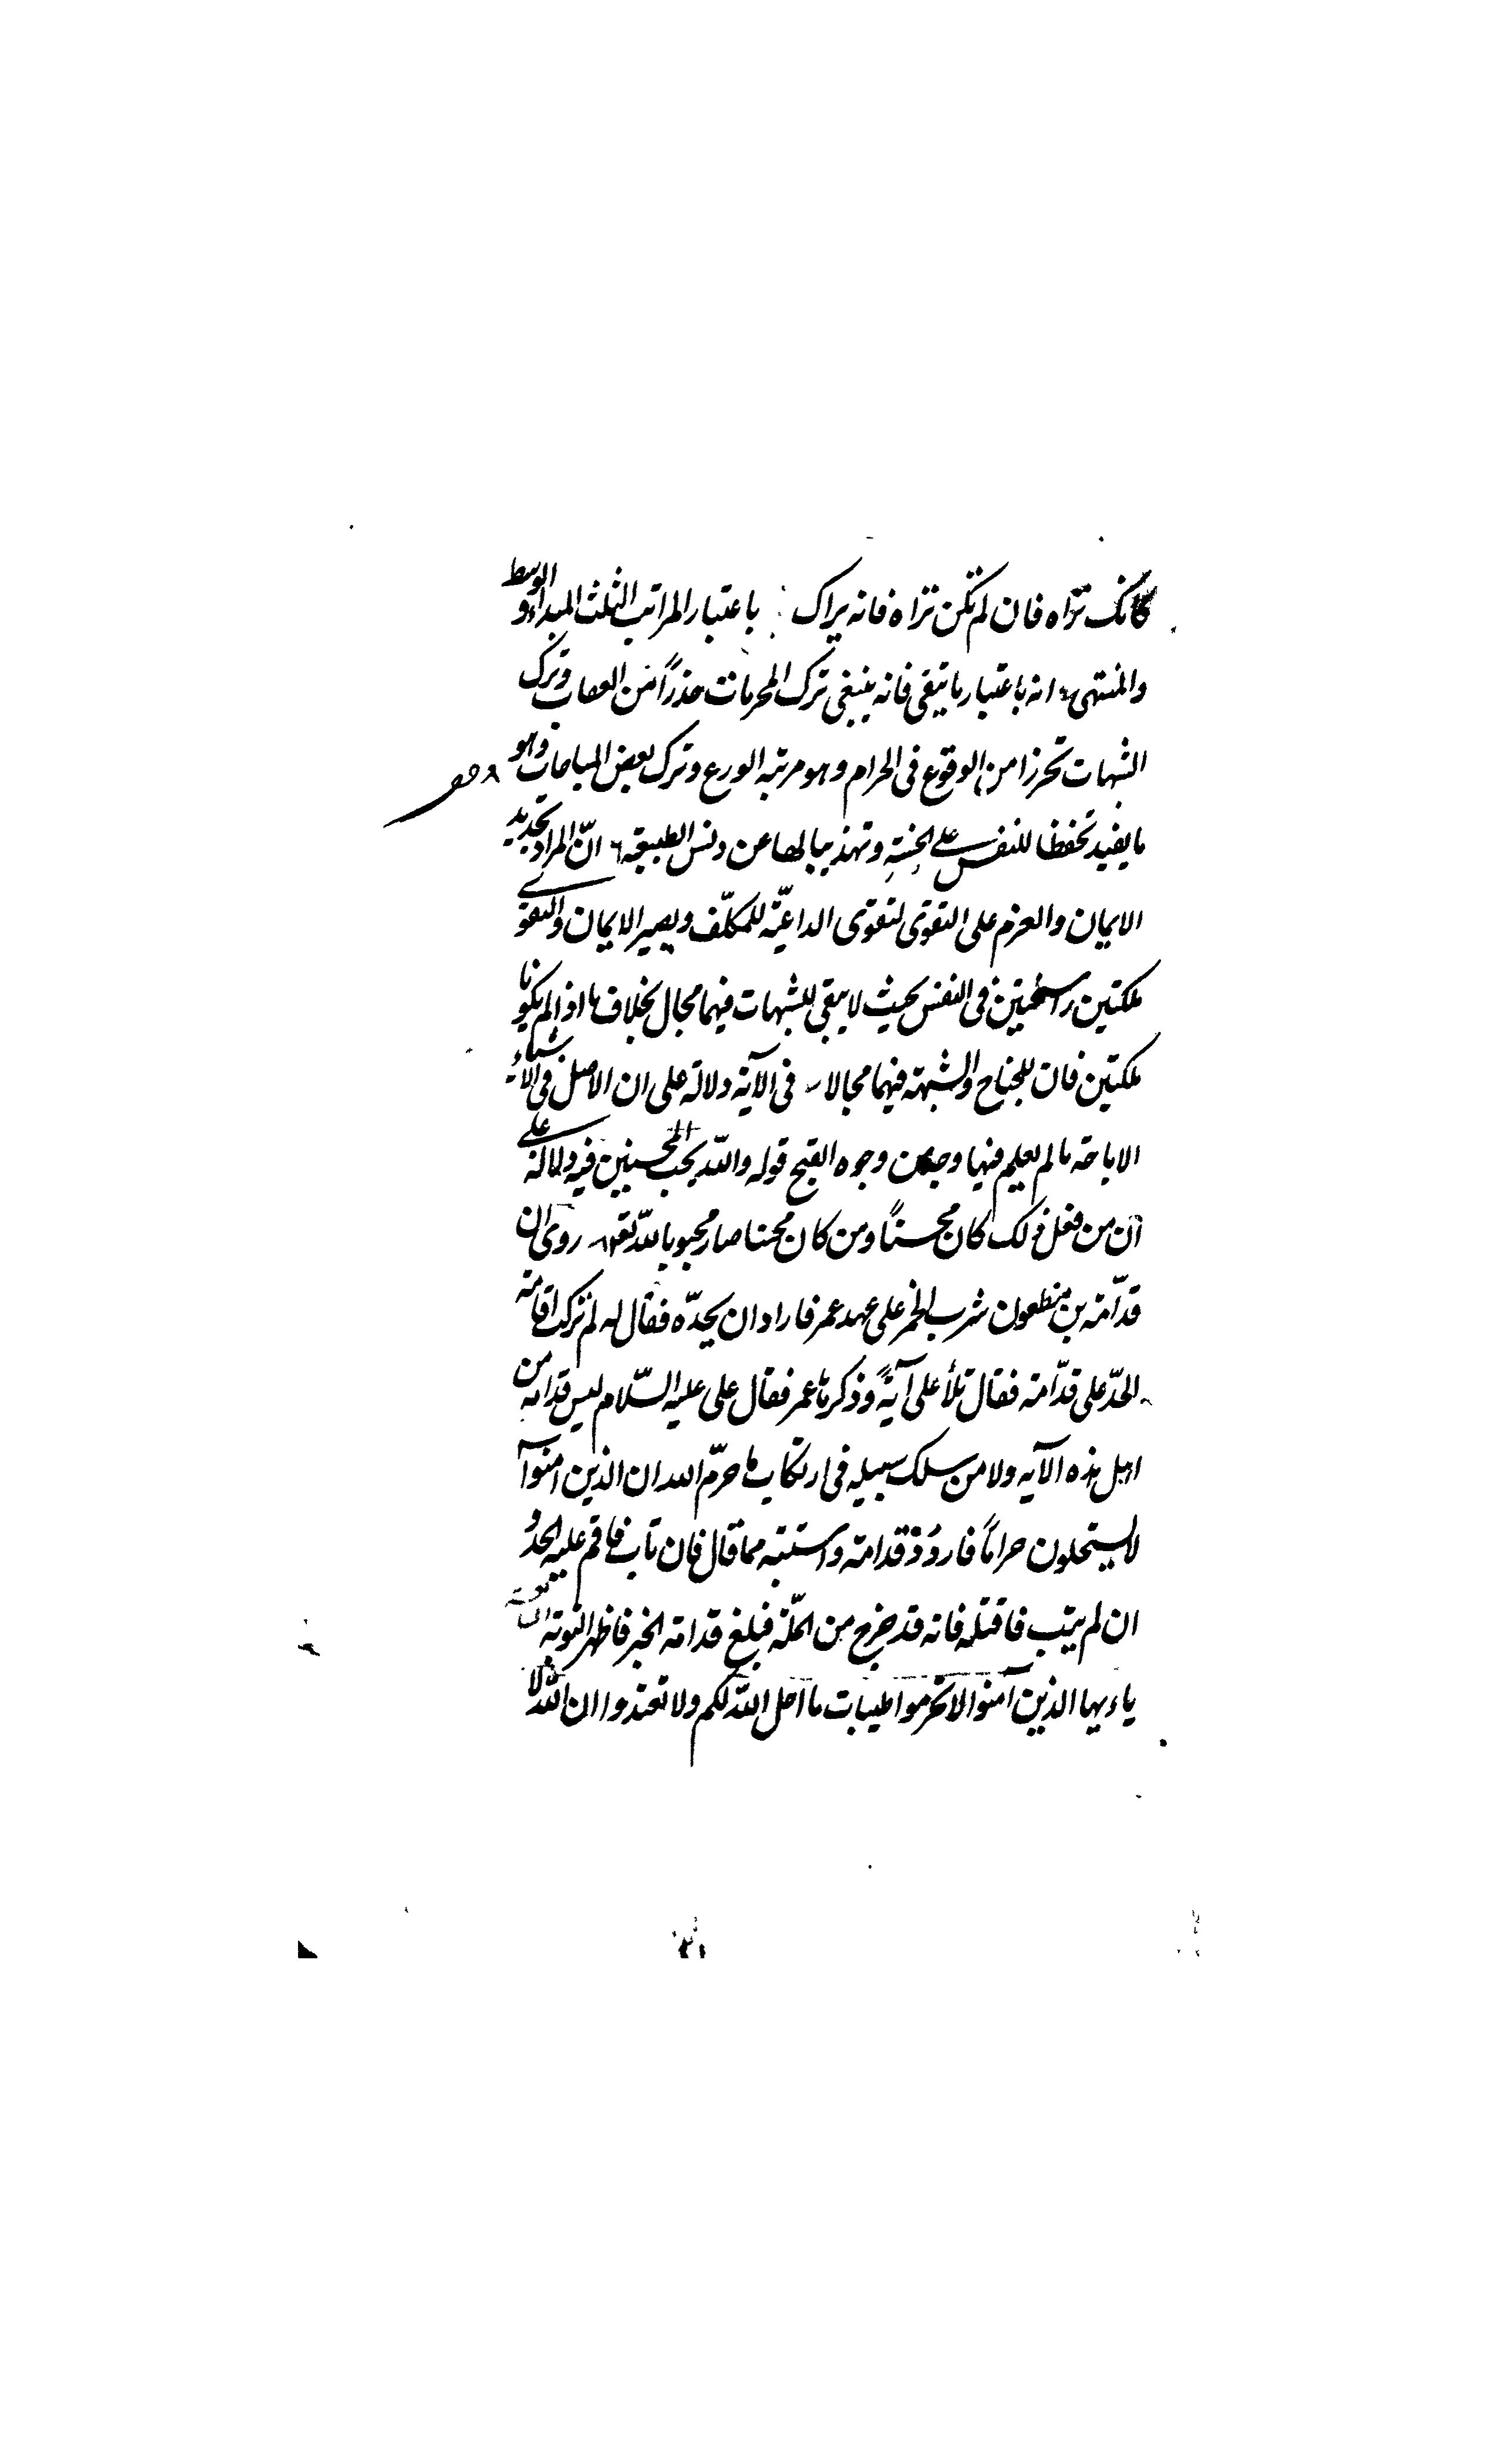 كانك تراه فان لم تكن تراه فانه يراك باعتبار المراتب الثلث المبداء والوسط
والمنتهى انه باعتبار ما يتقى فانه ينبغى ترك المحرمات حذراً من العقاب وترك
الشبهات تحرزا من الوقوع فى الحرام وهو مرتبه الورع وترك بعض المباحات وهو
ما يفيد تحفظا للنفس على الخسة وتهذيبا لها عن دنس الطبيعة ٦ انّ المراد تجديد
الايمان والعزم على التقوى لتقوى الداعيّة للمكلّف ويصير الايمان والتقوى
ملكتين راسختين فى النفس بحيث لا يبقى للشبهات فيهما مجال بخلاف ما اذا لم يكونا
ملكتين فان للجناح والشبهة فيهما مجالا فى الآية دلالة على ان الاصل فى الاشياء
الاباحة ما لم يعلم فيها وجه من وجوه القبح قوله والله يحب المحسنين فيه دلالة على
ان من فعل ذلك كان محسناً ومن كان محسنا صار محبوبا لله تعه روى ان
قدّامة بن مظعون شرب الخمر على عهد عمر فاراد ان يحدّه فقال له لم تركت اقامة
الحدّ على قدّامة فقال تلأ على آيةً وذكرها عمر فقال على عليه السّلام ليس قدامه من
اهل هذه الآيه ولا من سلك سبيله فى ارتكاب ما حرّم الله ان الذين امنوا
لا يستحلون حراماً فاردُدْ قدامة واستتبه مما قال فان تاب فاقم عليه الحد و
ان لم يتب فاقتله فانه قد خرج من الملّة فبلغ قدامة الخبر فاظهر التوبة
ياءيها الذين آمنوا لا تحرموا طيبات ما احل الله لكم ولا تعتدوا ان الله لا